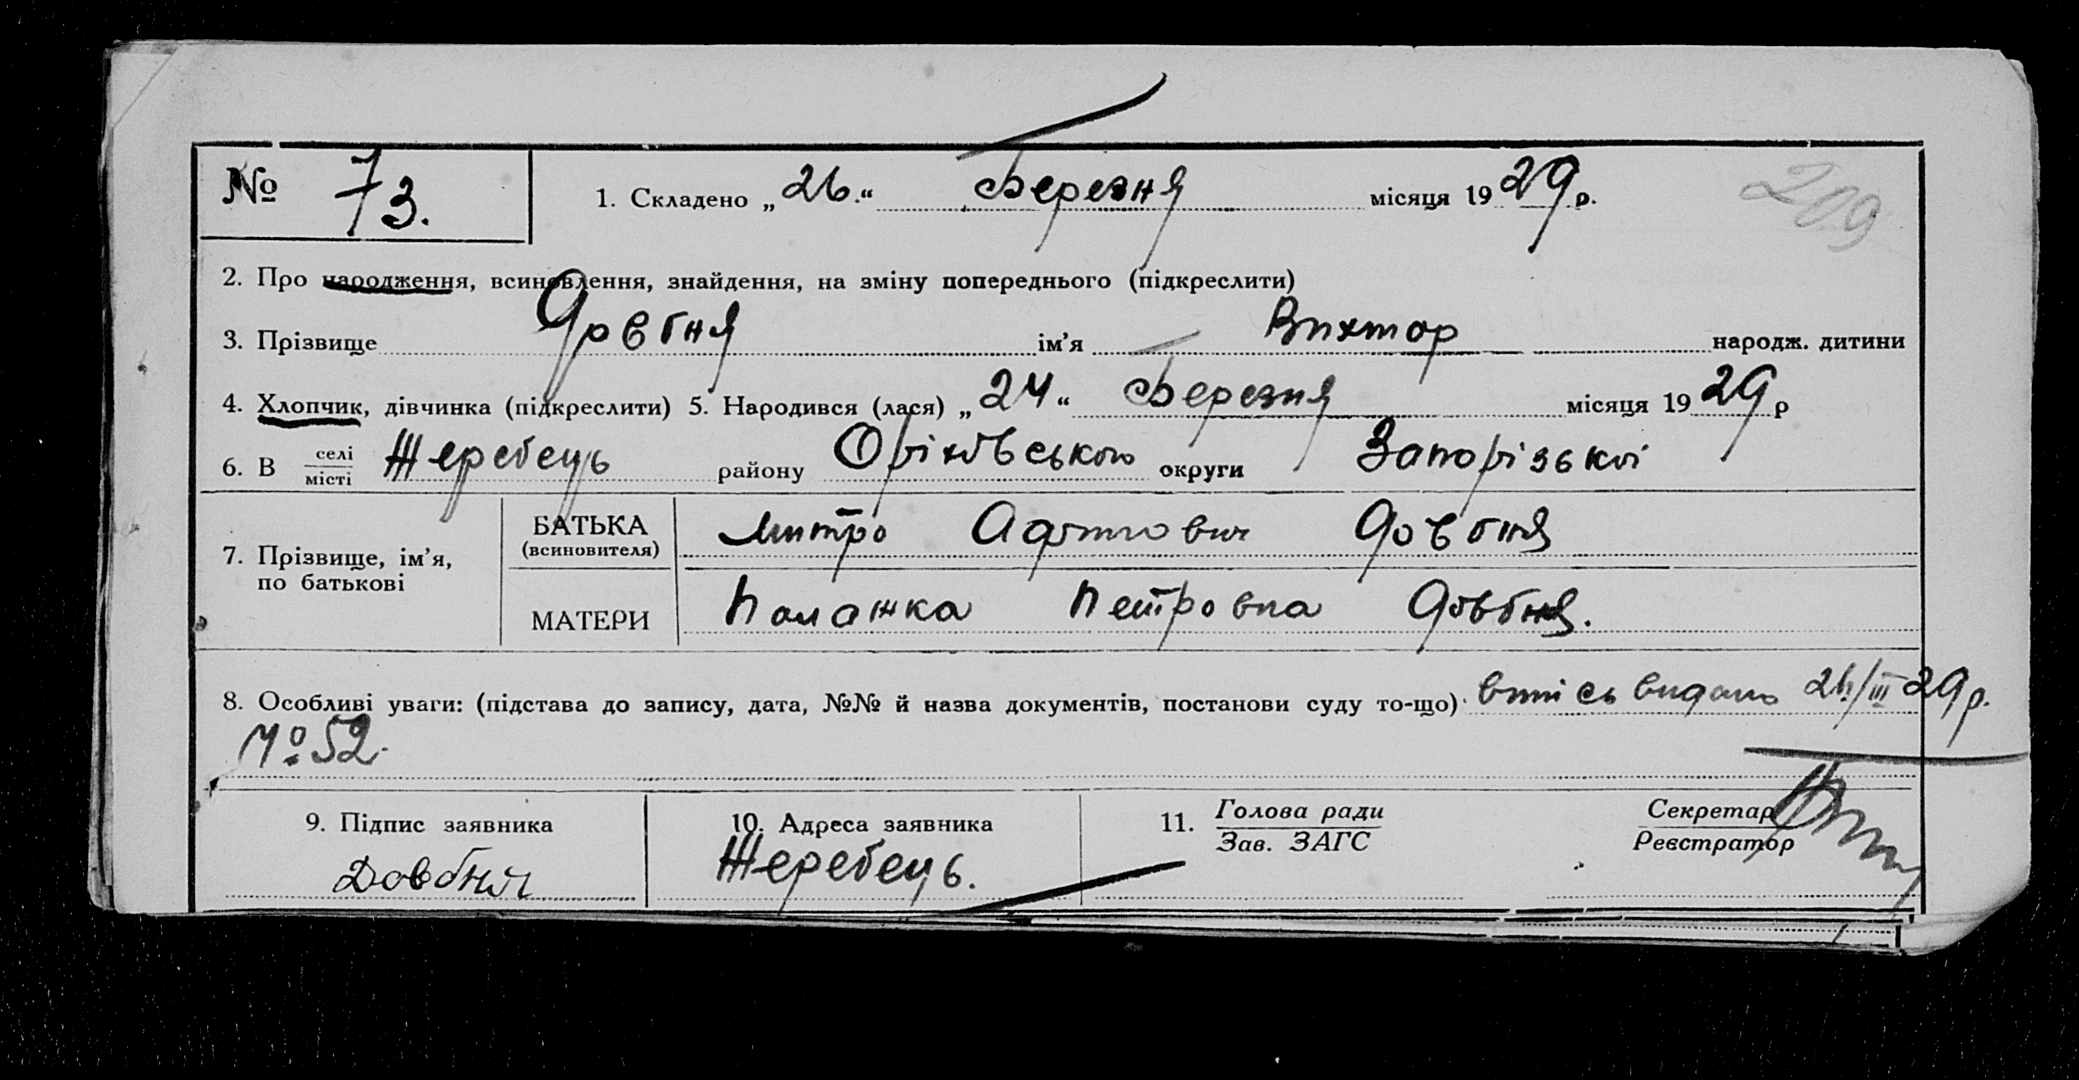 № 73.
1. Складено „26.“ Березня місяця 1929 р.
209
2. Про народження, всиновлення, знайдення, на зміну попереднього (підкреслити)
3. Прізвище Довбня ім’я Виктор народж. дитини
4. Хлопчик, дівчинка (підкреслити) 5. Народився (лася) „24“ Березня місяця 1929 р
6. В селі місті Жеребець району Оріхівського округи Запорізької
7. Прізвище, ім’я, по батькові
БАТЬКА (всиновителя) Митро Довбня
МАТЕРИ Палажка Петровна Довбня.
8. Особливі уваги: (підстава до запису, дата, №№ й назва документів, постанови суду то-що) видано 26/III 29 р.
№ 52.
9. Підпис заявника
Довбня
10. Адреса заявника
Жеребець.
11. Голова ради
Зав. ЗАГС
Секретар
Реєстратор